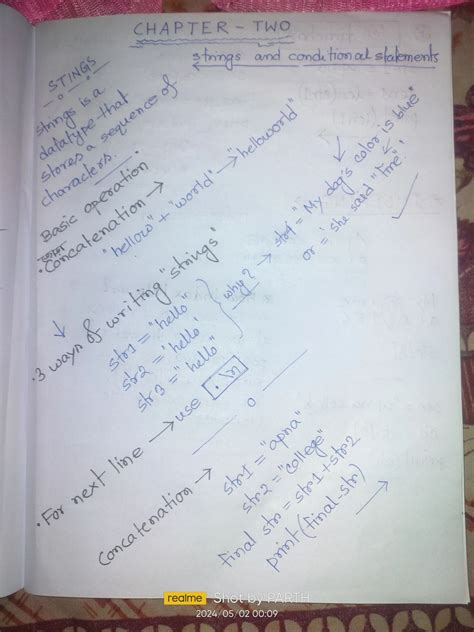 CHAPTER - TWO
strings and conditional statements
STINGS
strings is a
datatype that
stores a sequence of
characters.
Basic operation
• Concatenation →
"hellow" + "world" → "helloworld"
• 3 ways of writing "strings"
str1 = "hello"
str2 = 'hello'
str3 = "hello"
why? → str4 = "My dog's color is blue"
or = 'she said "fine"'
• For next line → use \n
Concatenation →
str1 = "apna"
str2 = "college"
final str = str1 + str2
print(final-str)
realme Shot by PARTH
2024/05/02 00:09